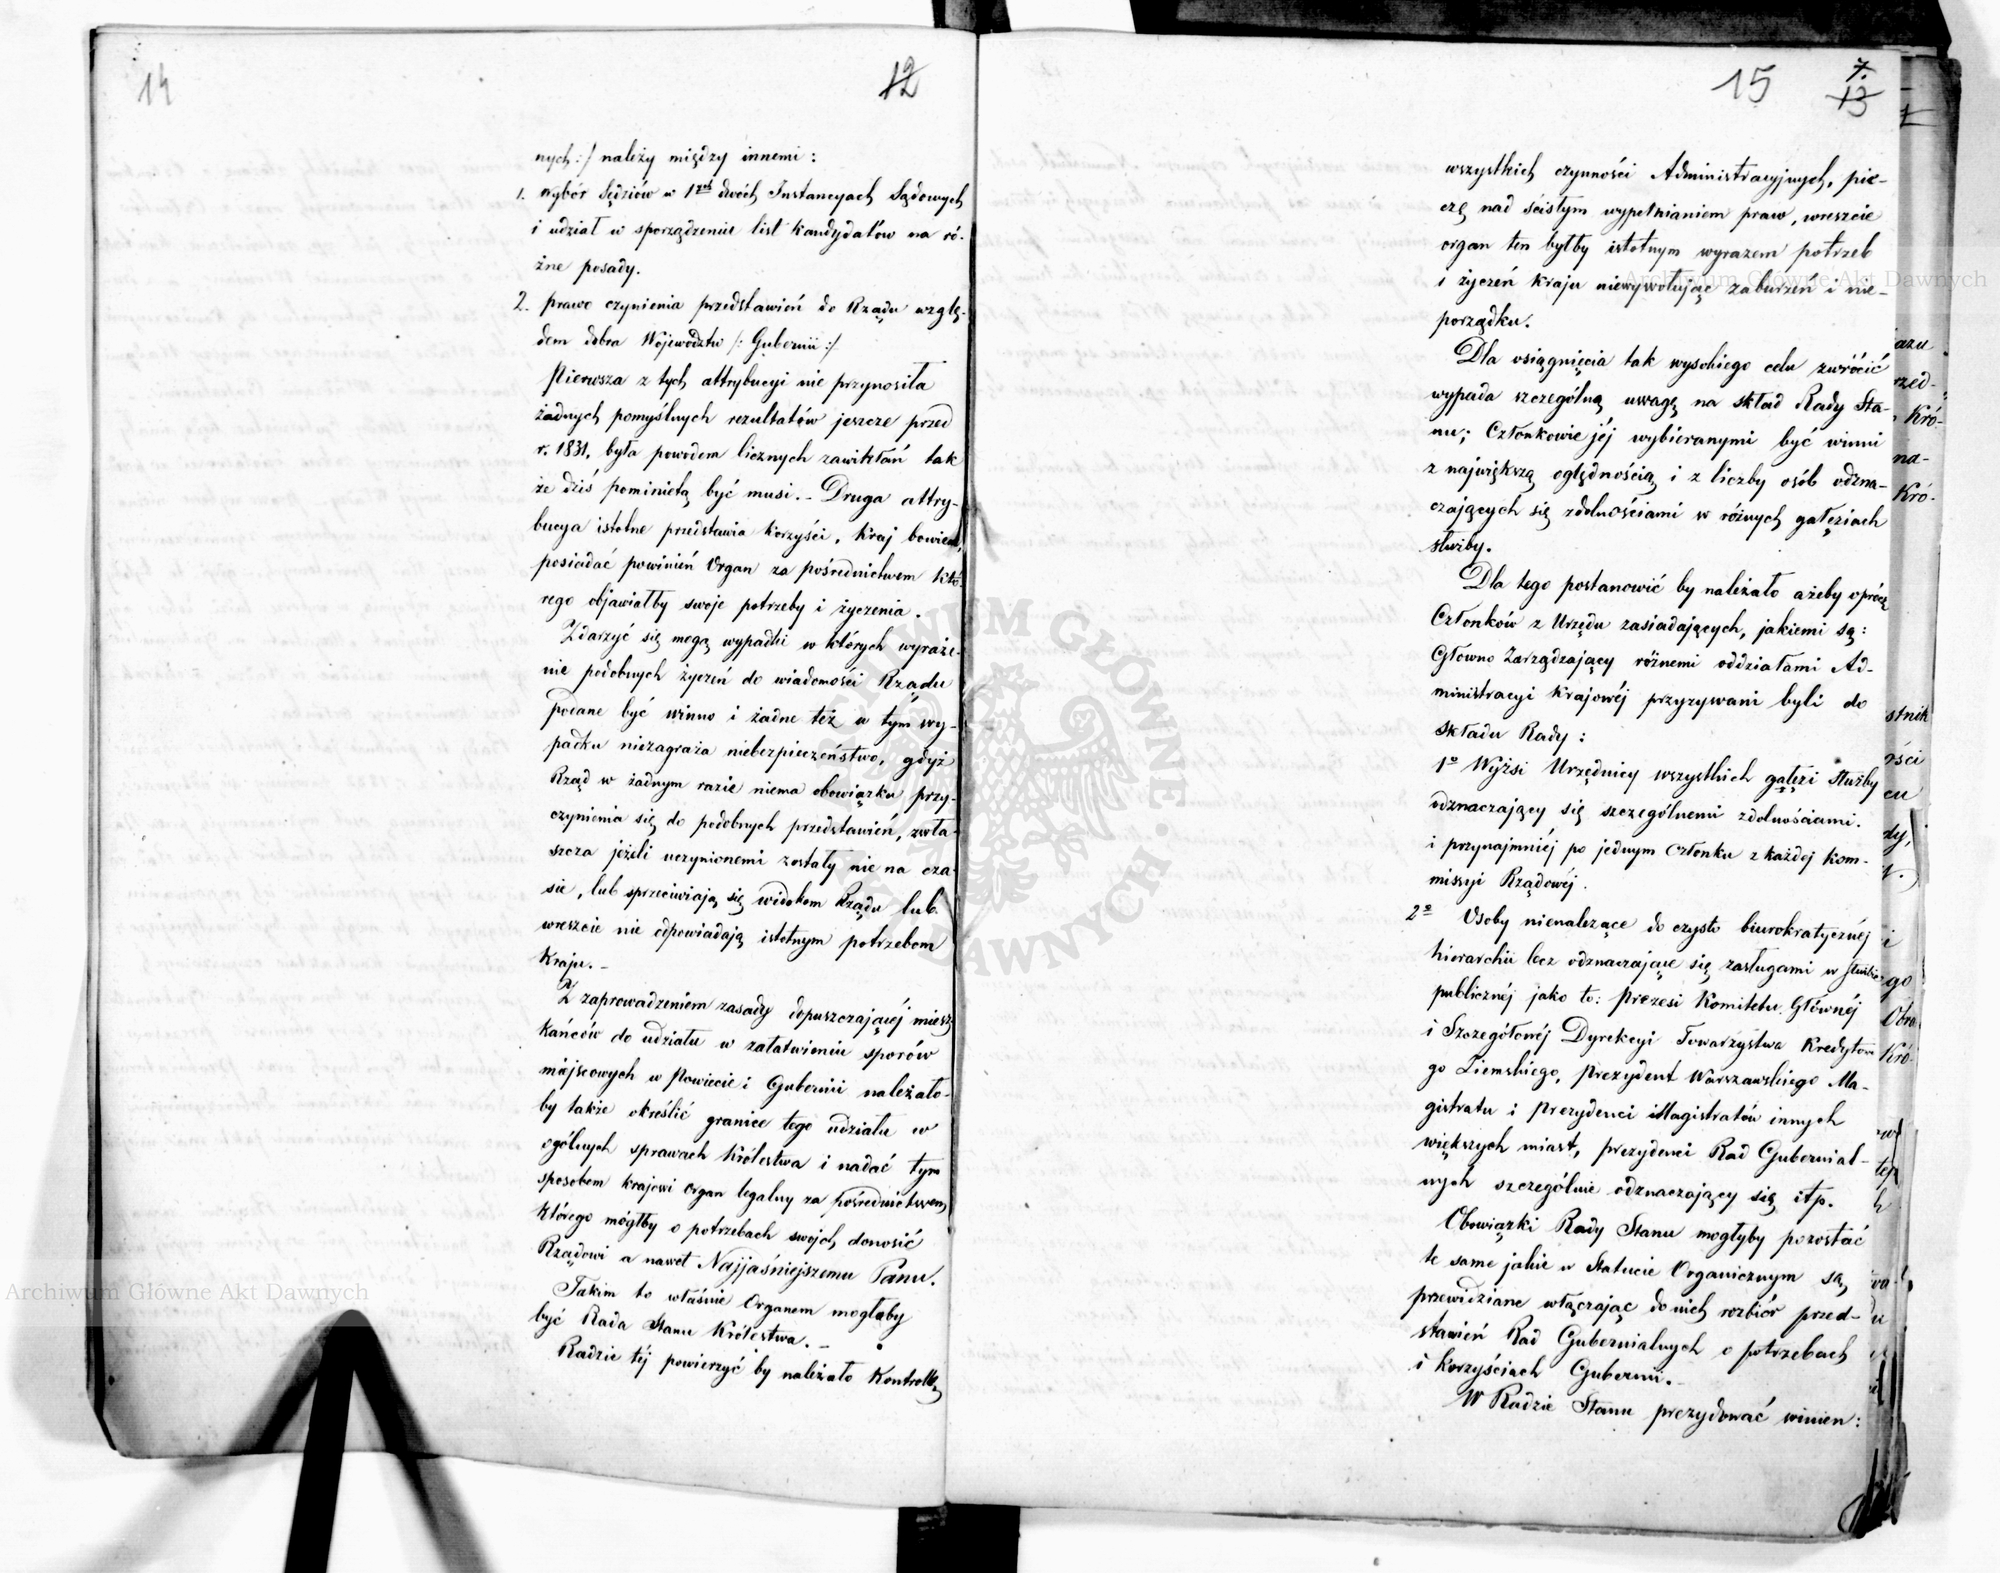 14
12
nych :/ należy między innemi :
1. Wybór Sędziów w 1szych dwóch Instancyach Sądowych
i udział w sporządzeniu list kandydatów na ró-
żne posady.
2. prawo czynienia przedstawień do Rządu wzglę-
dem dobra Województw /: Gubernii :/
Pierwsza z tych attrybucyi nie przynosiła
żadnych pomyślnych rezultatów jeszcze przed
r. 1831, była powodem licznych zawikłań tak
że dziś pominiętą być musi. - Druga attry-
bucya istotne przedstawia korzyści, Kraj bowiem,
posiadać powinień Organ za pośrednictwem któ-
rego objawiałby swoje potrzeby i życzenia.
Zdarzyć się mogą wypadki w których wyraże-
nie podobnych życzeń do wiadomości Rządu
podane być winno i żadne też w tym wy-
padku niezagraża niebezpieczeństwo, gdyż
Rząd w żadnym razie niema obowiązku przy-
czynienia się do podobnych przedstawień, zwła-
szcza jeżeli uczynionemi zostały nie na cza-
sie, lub sprzeciwiają się widokom Rządu lub
wreszcie nie odpowiadają istotnym potrzebom
Kraju. -
Z zaprowadzeniem zasady dopuszczającéj miesz-
kańców do udziału w załatwieniu sporów
miejscowych w Powiecie i Gubernii należało-
by także określić granice tego udziału w
ogólnych sprawach Królestwa i nadać tym
sposobem krajowi organ legalny za pośrednictwem
którego mógłby o potrzebach swoich donosić
Rządowi a nawet Najjaśniejszemu Panu.
Takim to właśnie Organem mogłaby
być Rada Stanu Królestwa. -
Radzie téj powierzyć by należało Kontrollę
15
7.
13
wszystkich czynności Administracyjnych, pie-
czę nad ścisłym wypełnianiem praw, wreszcie
organ ten byłby istotnym wyrazem potrzeb
i życzeń kraju niewywołując zaburzeń i nie-
porządku.
Dla osiągnięcia tak wysokiego celu zwrócić
wypada szczególną uwagę na skład Rady Sta-
nu; Członkowie jéj wybieranymi być winni
z największą oględnością i z liczby osób odzna-
czających się zdolnościami w różnych gałęziach
służby.
Dla tego postanowić by należało ażeby oprócz
Członków z Urzędu zasiadających, jakiemi są:
Głowno Zarządzający różnemi oddziałami Ad-
ministracyi krajowéj przyzywani byli do
składu Rady :
1o Wyżsi Urzędnicy wszystkich gałęzi służby
odznaczający się szczególnemi zdolnościami.
i przynajmniéj po jednym członku z każdej Kom-
missyi Rządowéj.
2o Osoby nienależące do czysto biurokratycznéj
hierarchii lecz odznaczające się zasługami w służbie
publicznéj jako to: prezesi Komitetu Głównéj
i Szczegółowéj Dyrekcyi Towarzystwa Kredytowe
go Ziemskiego, prezydent Warszawskiego Ma-
gistratu i prezydenci Magistratów innych
większych miast, prezydenci Rad Gubernial-
nych szczególnie odznaczający się itp.
Obowiązki Rady Stanu mogłyby pozostać
te same jakie w Statucie Organicznym są
przewidziane włączając do nich rozbiór przed-
stawień Rad Gubernialnych o potrzebach
i korzyściach Gubernii. -
W Radzie Stanu prezydować winien :
Archiwum Główne Akt Dawnych
Archiwum Główne Akt Dawnych
ARCHIWUM GŁÓWNE AKT DAWNYCH